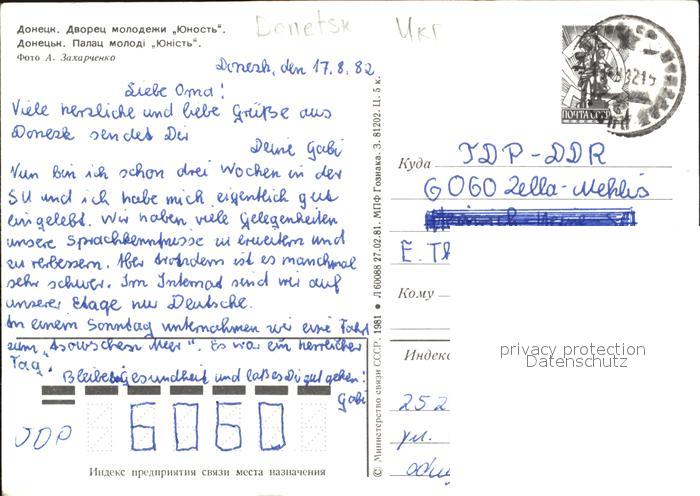 Донецк. Дворец молодежи „Юность“.
Донецьк. Палац молоді „Юність“.
Фото А. Захарченко
Donetsk Ukr
Donezk, den 17.8.82
Liebe Oma!
Viele herzliche und liebe Grüße aus
Donezk sendet Dir
Deine Gabi
Nun bin ich schon drei Wochen in der
SU und ich habe mich eigentlich gut
eingelebt. Wir haben viele Gelegenheiten
unsere Sprachkenntnisse zu erweitern und
zu verbessern. Aber trotzdem ist es manchmal
sehr schwer. Im Internat sind wir auf
unserer Etage nur Deutsche.
An einem Sonntag unternahmen wir eine Fahrt
zum „Asowschen Meer“. Es war ein herrlicher
Tag.
Bleibe gesundheit und laß es Dir gut gehen!
Gabi
ГДР
6060
Индекс предприятия связи места назначения
© Министерство связи СССР. 1981 ● Л 60088 27.02.81. МПФ Гознака. З. 81202. Ц. 5 к.
ПОЧТА СССР
Куда ГДР-DDR
6060 Zella-Mehlis
E. Th
Кому
Индекс
252
ул.
privacy protection
Datenschutz